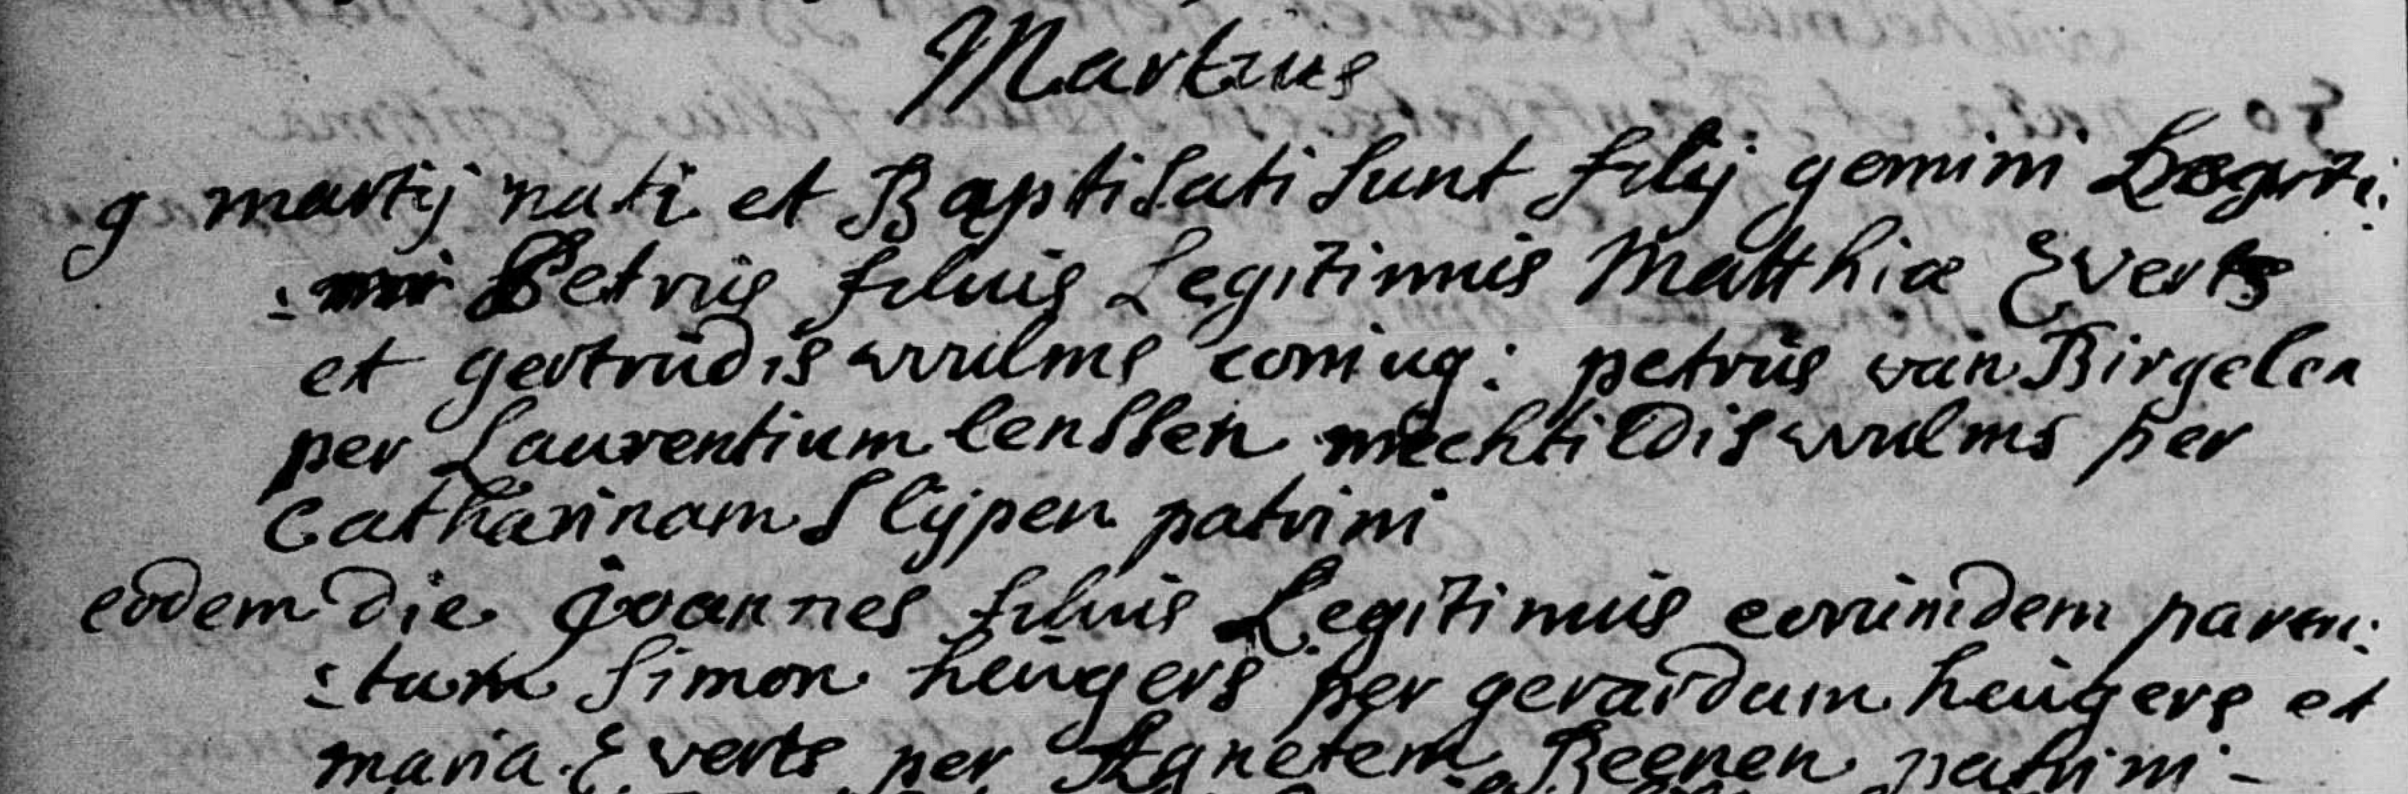 Martius
9 martij nati et Baptisati sunt filij gemini Legiti:
:mi Petrus filius Legitimus Matthiæ Everts
et gertrudis wulms coniug: petrus van Birgelen
per Laurentium lenssen mechtildis wulms per
Catharinam Slijpen patrini
eodem die Joannes filius Legitimus eorumdem paren:
:tum Simon heugers per gerardum heugers et
maria Everts per Agnetem Beenen patrini -